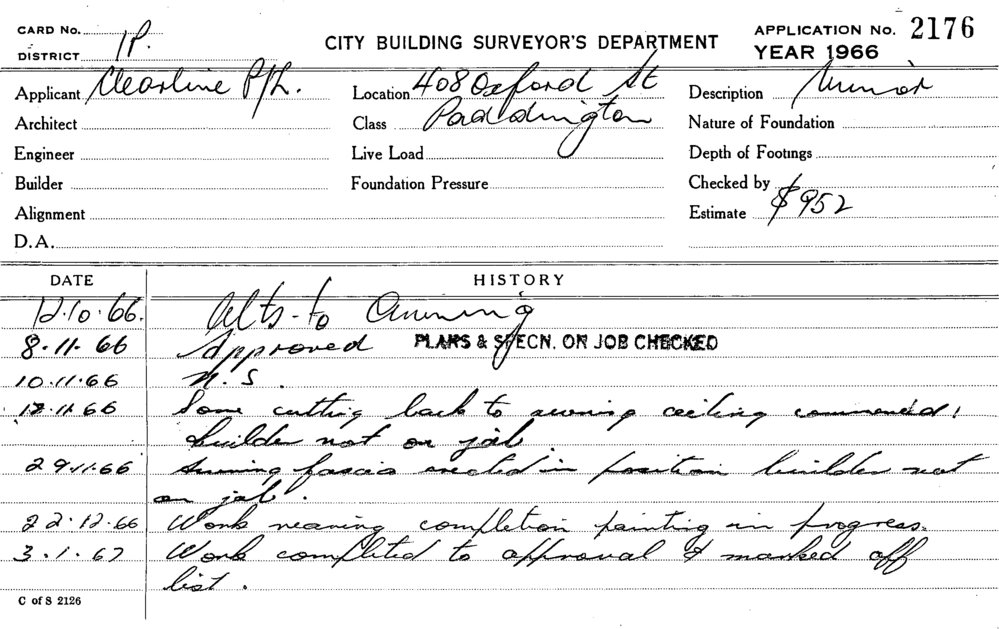 CARD No.
DISTRICT 1P.
CITY BUILDING SURVEYOR'S DEPARTMENT
APPLICATION No. 2176
YEAR 1966
Applicant Clearline P/L.
Location 408 Oxford St
Description Minor
Architect
Class Paddington
Nature of Foundation
Engineer
Live Load
Depth of Footings
Builder
Foundation Pressure
Checked by
Alignment
Estimate $952
D.A.
DATE HISTORY
12.10.66. Alts. to Awning
8.11.66 Approved PLANS & SPECN. ON JOB CHECKED
10.11.66 N.S.
12.11.66 Some cutting back to awning ceiling commenced!
builder not on job.
29.11.66 Awning fascia erected in position builder not
on job.
22.12.66 Work nearing completion painting in progress.
3.1.67 Work completed to approval & marked off
list.
C of S 2126